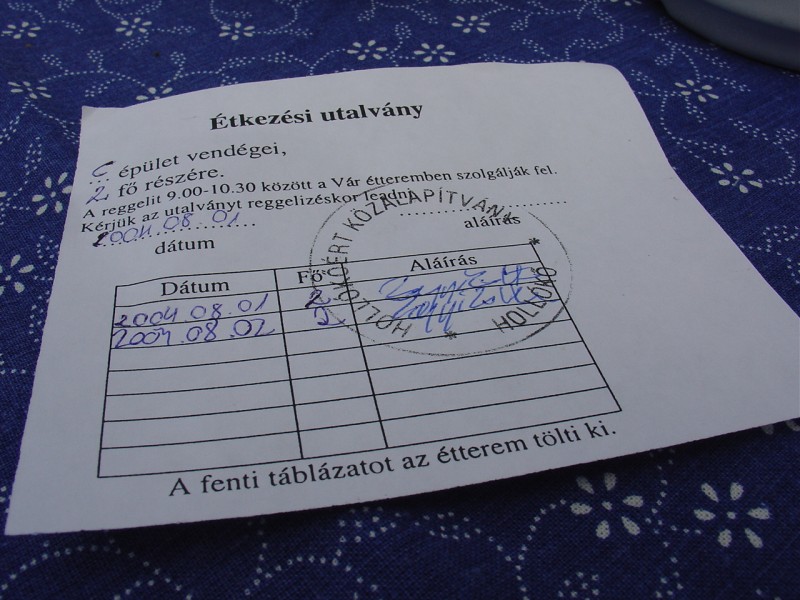 Étkezési utalvány
C épület vendégei,
2 fő részére.
A reggelit 9.00-10.30 között a Vár étteremben szolgálják fel.
Kérjük az utalványt reggelizéskor leadni.
2004.08.01
dátum
aláírás
HOLLÓKŐÉRT KÖZALAPÍTVÁNY * HOLLÓKŐ *
Dátum Fő Aláírás
2004.08.01 2
2004.08.02 2
A fenti táblázatot az étterem tölti ki.